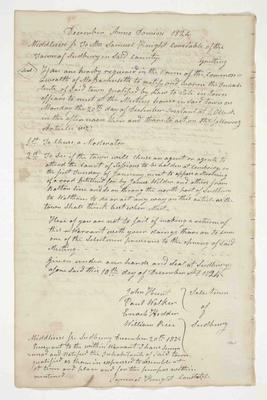 December Anno Domini 1824
Middlesex ss To Mr Samuel Knight Constable of the
Town of Sudbury in Said County Greeting
You are hereby required in the Name of the Common-
wealth of Massachusetts to notify and warn the Inhabi-
tants of Said town qualified by law to vote in town
affairs to meet at the Meeting house in Said town on
Monday the 20th day of December Instant at 1 Clock
in the afternoon then and there to act on the following
Articles viz
1st To Chuse a Moderator
2nd To See if the town will chuse an agent or agents to
attend the Court of Sessions to be holden at Cambridge on
the first Tuesday of January next to oppose a
of a road petitioned for by and others from
Walton line and so on through the north part of Sudbury
to Waltham or to do or act any way on this article as the
town Shall think best when met
Here of you are not to fail of making a return of
this Warrant with your doings thereon to Some
one of the Selectmen previous to the opening of Said
Meeting
Given under our hands and Seal at Sudbury
afore Said this 10th day of December AD 1824
John Hunt
Paul Walker
William Rice
Selectmen
of
Sudbury
Middlesex ss Sudbury December 20th 1824
Pursuant to the within Warrant I have Sum-
moned and Notified the Inhabitants of Said town
qualified as therein expressed to assemble at
time and place and for the purpose within
mentioned
Samuel Knight Constable